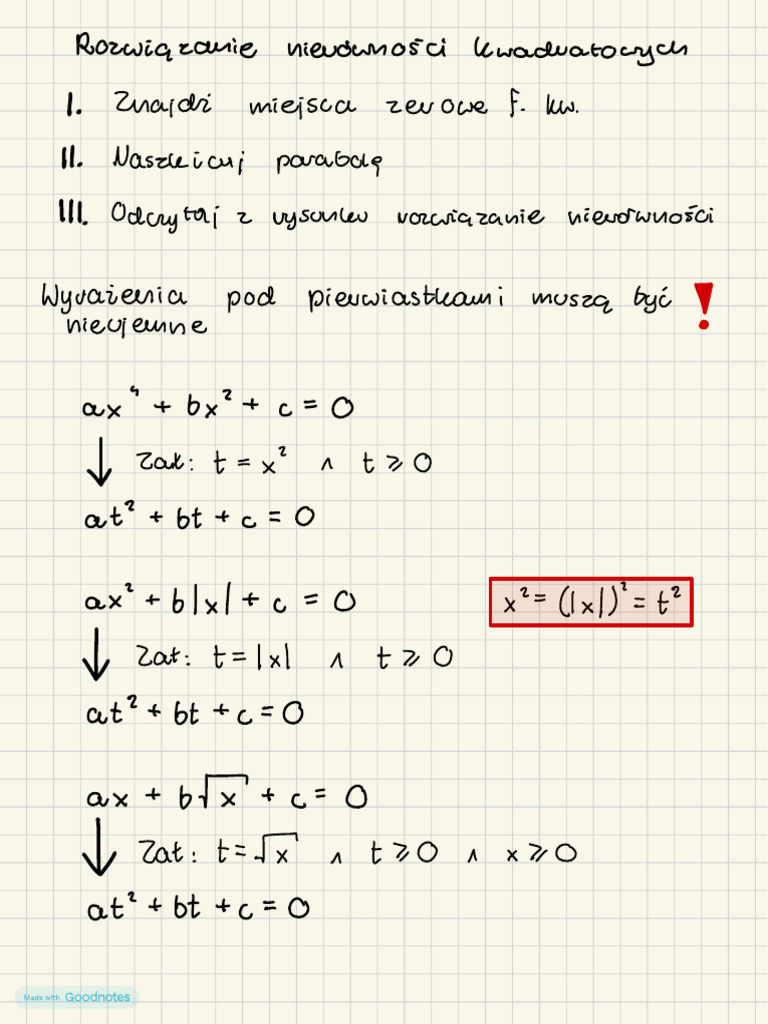 Rozwiązanie nierówności kwadratowych
I. Znajdź miejsca zerowe f. kw.
II. Naszkicuj parabolę
III. Odczytaj z rysunku rozwiązanie nierówności
Wyrażenia pod pierwiastkami muszą być !
nieujemne
ax⁴ + bx² + c = 0
↓ Zał: t = x² ∧ t ⩾ 0
at² + bt + c = 0
ax² + b|x| + c = 0
x² = (|x|)² = t²
↓ Zał: t = |x| ∧ t ⩾ 0
at² + bt + c = 0
ax + b√x + c = 0
↓ Zał: t = √x ∧ t ⩾ 0 ∧ x ⩾ 0
at² + bt + c = 0
Made with Goodnotes